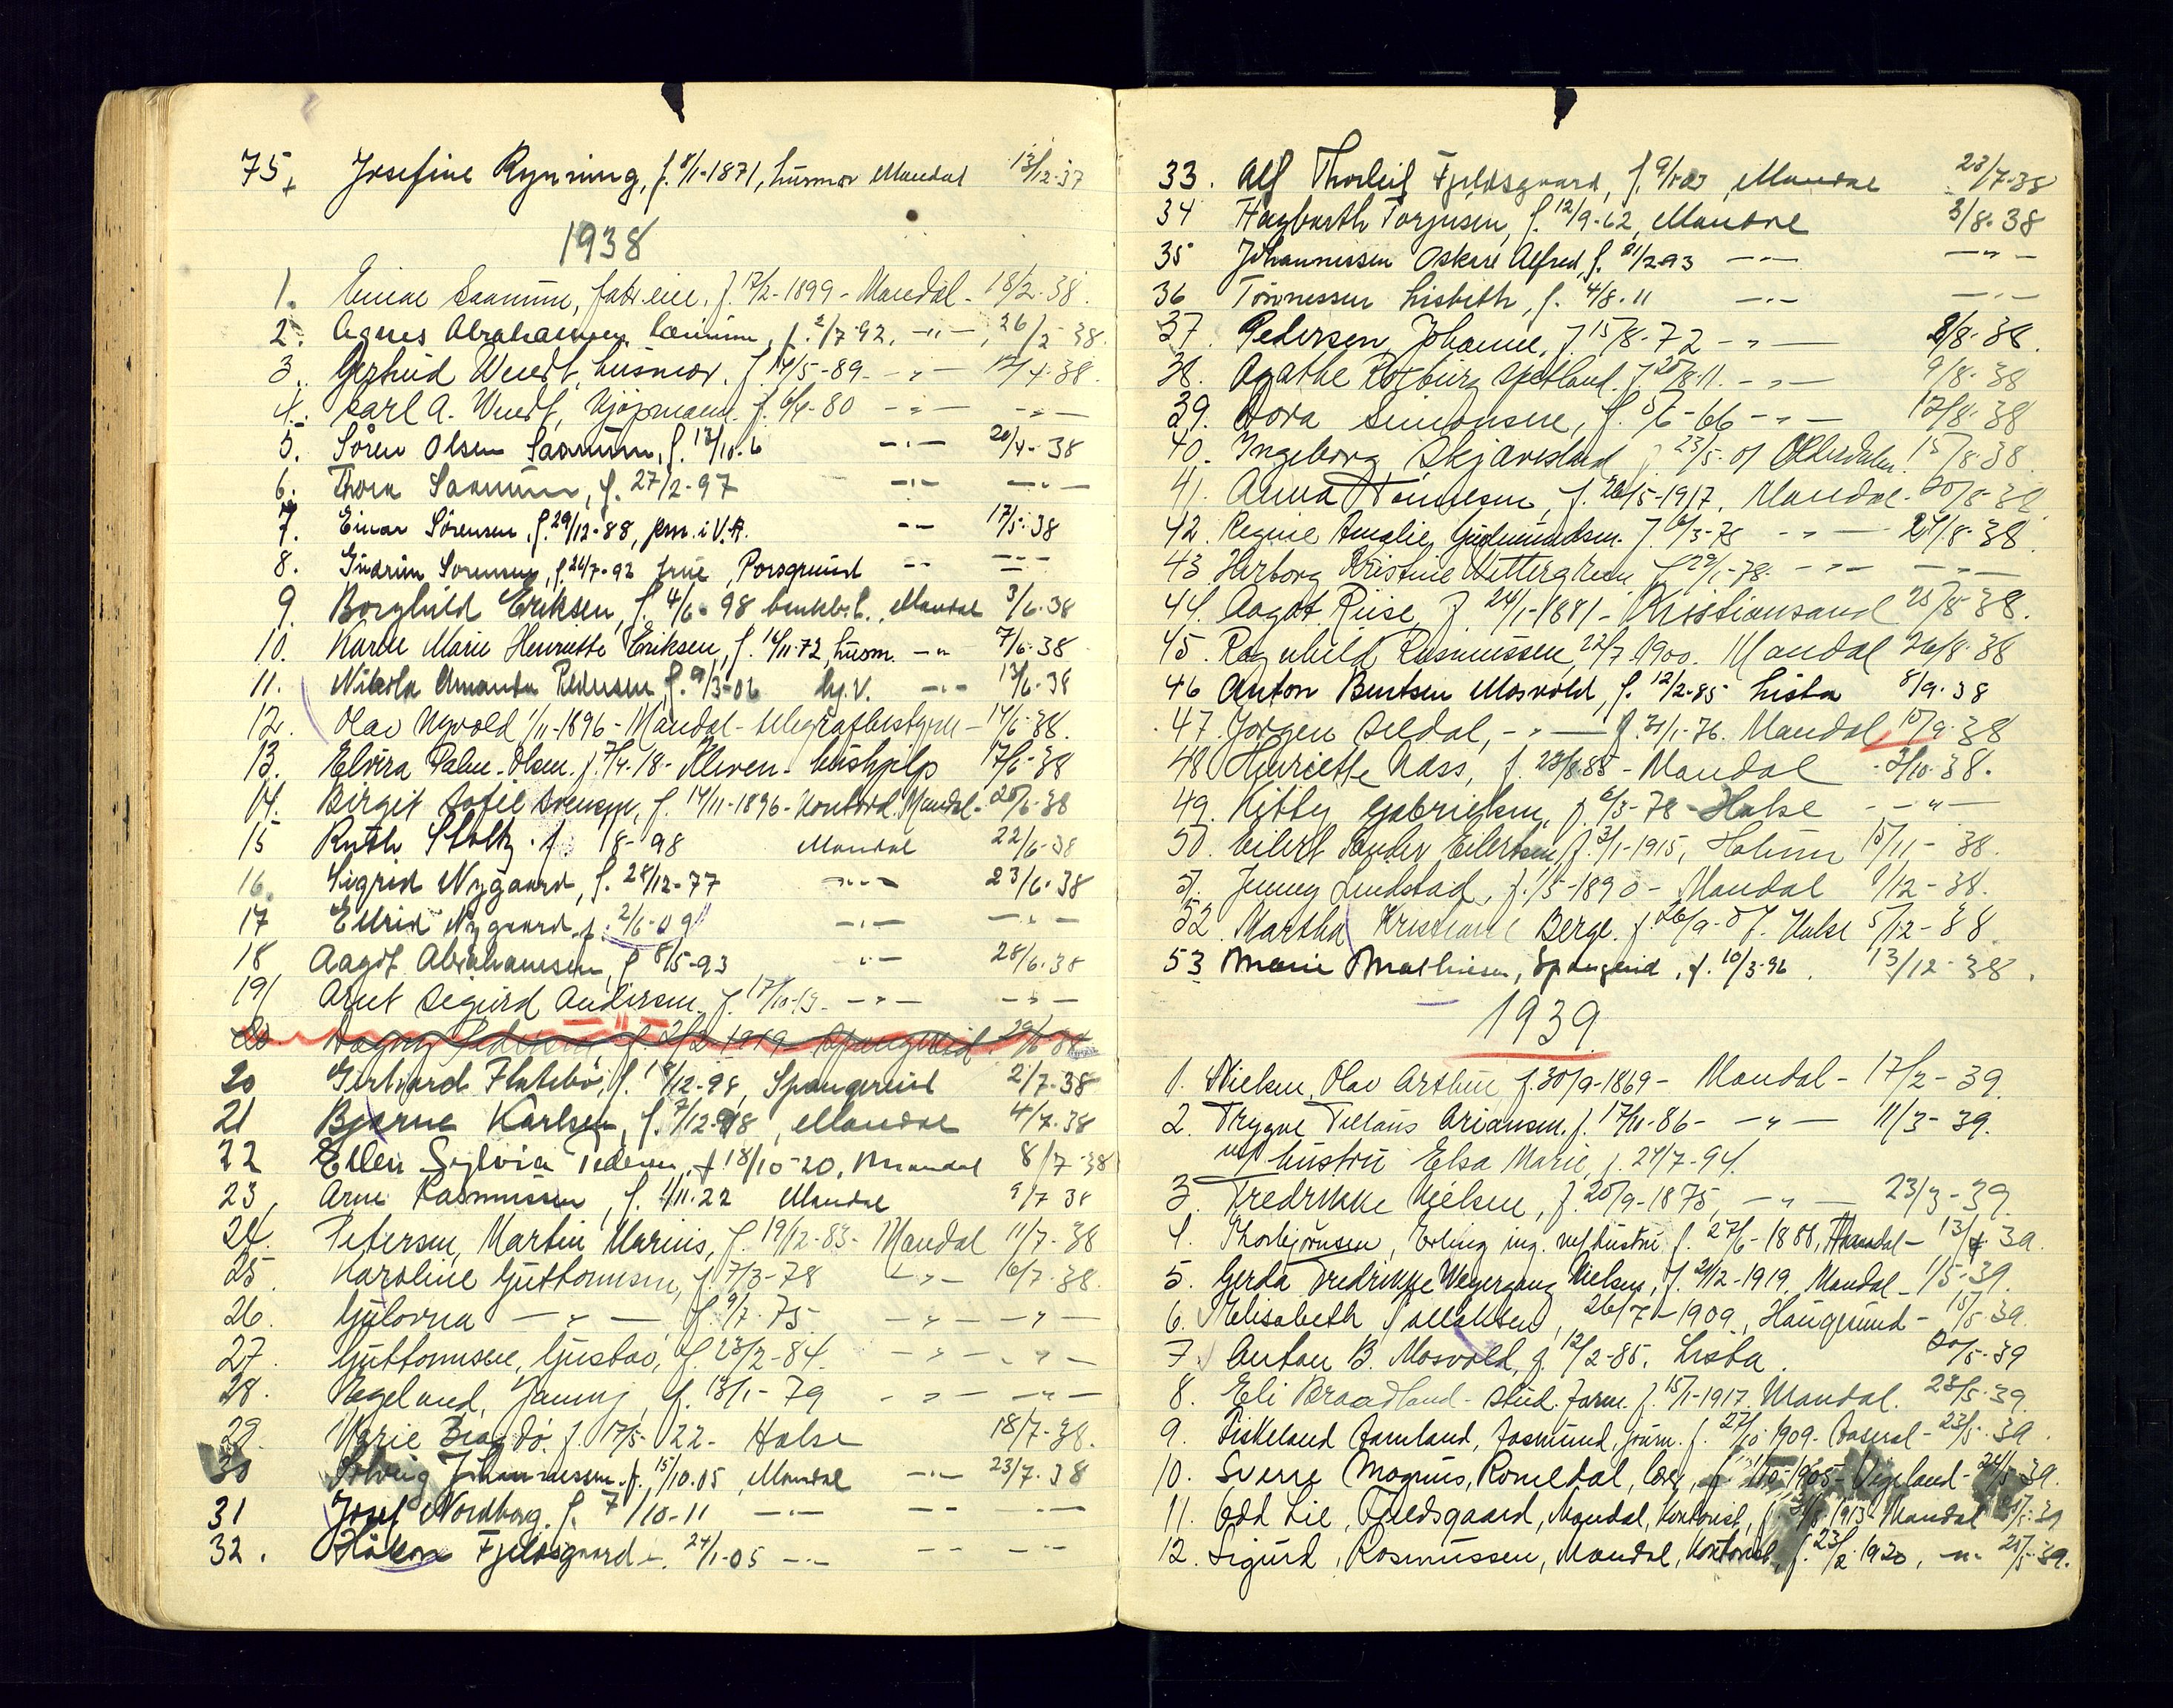 75. Josefine Rynning, f. 8/1-1871, husmor Mandal 13/12-37
1938
1. Einar Saanum, fabr.eier. f. 17/2-1899 - Mandal - 18/2-38.
2. Agnes Abrahamsen, f. 2/7-92. -"- 26/2-38.
3. Gertrud Wendt, husmor. f. 14/5-89 - " - 12/4-38.
4. Karl A. Wendt, kjøpmann. f. 6/4-80 - " - - " -
5. Søren Olsen Saanum, f. 13/10-6 - " - 20/4-38
6. Thora Saanum, f. 27/2-97 - " - - " -
7. Einar Sørensen, f. 29/12-88, -"- 17/5-38
8. Gudrun Sørensen, f. 24/7-92 frue, Porsgrund -"- - " -
9. Borghild Eriksen, f. 4/6-98 Mandal 3/6-38
10. Karen Marie Henriette Eriksen, f. 16/11-72, husm. -"- 7/6-38
11. Nikola Amanda Pedersen, f. 9/3-06 -"- 13/6-38
12. Olav Nyvold 1/11-1896 - Mandal - telegrafbestyrer - 14/6-38.
13. Elvira Palm-Olsen. f. 7/4-18 - Kleven - hushjelp 17/6-38
14. Birgit Sofie Svensen, f. 14/11-1896 - Kontord. Mandal - 20/6-38
15 Ruth Stoltz. f. 18-98 Mandal 22/6-38
16. Sigrid Nygaard, f. 28/12-77 -"- 23/6-38
17 Nygaard f. 2/6-09 -"- - " -
18 Aagot Abrahamsen, f. 8/5-93 -"- 28/6-38
19 Arnt Sigurd Andersen. f. 17/10-13 - " - - " -
20 Dagny Pedersen, f. 2/2-1919 - Spangereid. 29/6-38
20 Gerhard Flatebø, f. 18/12-98, Spangereid 2/7-38
21 Bjarne Karlsen, f. 7/12-98, Mandal 4/7-38
22 Ellen Sylvia Pedersen, f. 18/10-20, Mandal 8/7-38
23, Arne Rasmussen, f. 1/11-22 Mandal 9/7 38
24. Petersen, Martin Marius, f. 19/12-83 - Mandal 11/7-38
25. Karoline Guttormsen, f. 7/3-78 - " - 16/7-38.
26. Gulovna - " - f. 9/7-75 - " - - " -
27. Guttormsen, Gustav, f. 23/2-84. - " - - " -
28. Vegeland, Jenny, f. 13/1-79 - " - - " -
29. Marie Bragdø. f. 17/5-22 - Halse 18/7-38.
30 Solveig Johannessen. f. 15/10-05, Mandal -"- 23/7-38
31 Josef Nordberg. f. 7/10-11 -"- -"- -"-
32. Håkon Fjeldsgaard. 24/1-05 -"- -"- -"-
33. Alf Thorleif Fjeldsgaard, f. 9/1-03, Mandal 23/7-38
34 Hagbarth Torjusen, f. 12/9-62, Mandal 3/8-38
35 Johannessen Oskar Alfred, f. 21/2-93 -"- -"-
36 Tønnessen Lisbeth, f. 4/8-11 -"- -"-
37. Pedersen, Johanne, f. 15/8-72 - " - 8/8-38.
38. Agathe Rotburg Spetland. f. 20/8-11. - " - 9/8-38
39. Dora Simonsen, f. 5/6-66 - " - 12/8-38
40. Ingeborg Skjævesland f. 23/5-01 Olderdalen. 15/8-38
41. Anna Tønnesen, f. 26/5-1917, Mandal. 20/8-38
42. Regine Amalie Gudmundsen. f. 6/3-78 - " - 24/8-38.
43 Herborg Kristine Wettergreen f. 29/1-78. - " - - " -
44. Aagot Riise, f. 24/1-1881 - Kristiansand 25/8-38.
45. Ragnhild Rasmussen, 22/7 1900. Mandal 26/8-38
46 Anton Berntsen Mosvold, f. 12/2-85 Lista 8/9-38
47. Jørgen Seldal, - " - f. 31/1-76. Mandal 10/9-38
48. Henriette Næss, f. 28/8 85 - Mandal 3/10-38.
49. Kitty Gabrielsen, f. 6/3-78 - Halse - " -
50. Eilert Sander Eilertsen, f. 3/1-1915, Holum 15/11-38.
51. Jenny Lindstad, f. 1/5-1890 - Mandal 1/12-38.
52. Martha Kristiane Berge. f. 26/9-07. Halse 5/12-38
53 Marie Mathiesen, Spangereid, f. 10/3-96. 13/12-38.
1939
1. Nielsen, Olav Arthur f. 30/9-1869 - Mandal - 17/2-39.
2. Trygve Tellaus Ariansen. f. 17/11-86 - - " - 11/3-39.
m/ hustru Elsa Marie, f. 24/7-94.
3. Fredrikke Nielsen, f. 20/9-1875, - " - 23/3-39.
4. Thorbjørnsen, Erling ing. m/hustru f. 27/6-1888, Mandal - 13/4 39.
5. Gerda Fredrikke Weyergang Nielsen, f. 21/12-1919. Mandal - 1/5-39.
6. Elisabeth Tallaksen, 26/7-1909, Haugesund - 15/5 39.
7. Anton B. Mosvold, f. 12/2-85. Lista. 20/5-39
8. Eli Braadland - stud. farm. f. 15/1-1917. Mandal. 23/5-39.
9. Fiskeland Aamland, Aasmund, journ. f. 27/10-1909 - Aaseral - 23/5-39.
10. Sverre Magnus, Romedal, lærer, 1905 - Vigeland - 24/5-39.
11. Odd Lie, Fjeldsgaard, Mandal, Kontorist, 1913 - Mandal 25/5-39
12. Sigurd, Rasmussen, Mandal, Kontorist, f. 23/2-1920, -"- 25/5-39.